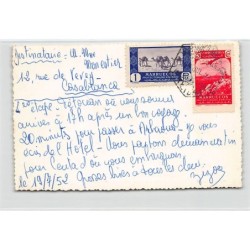 Destinataire : M. Mme
12, rue de
Casablanca
1
MARRUECOS
MARRUECOS
2ème étape Tetouan où nous sommes
arrivés à 17h après un bon voyage
20 minutes pour passer à Arbaoua. Je vous
écris de l'Hotel. Nous partons demain matin
pour Ceuta où nous embarquons
Grosses bises à tous les deux
le 19/7/52